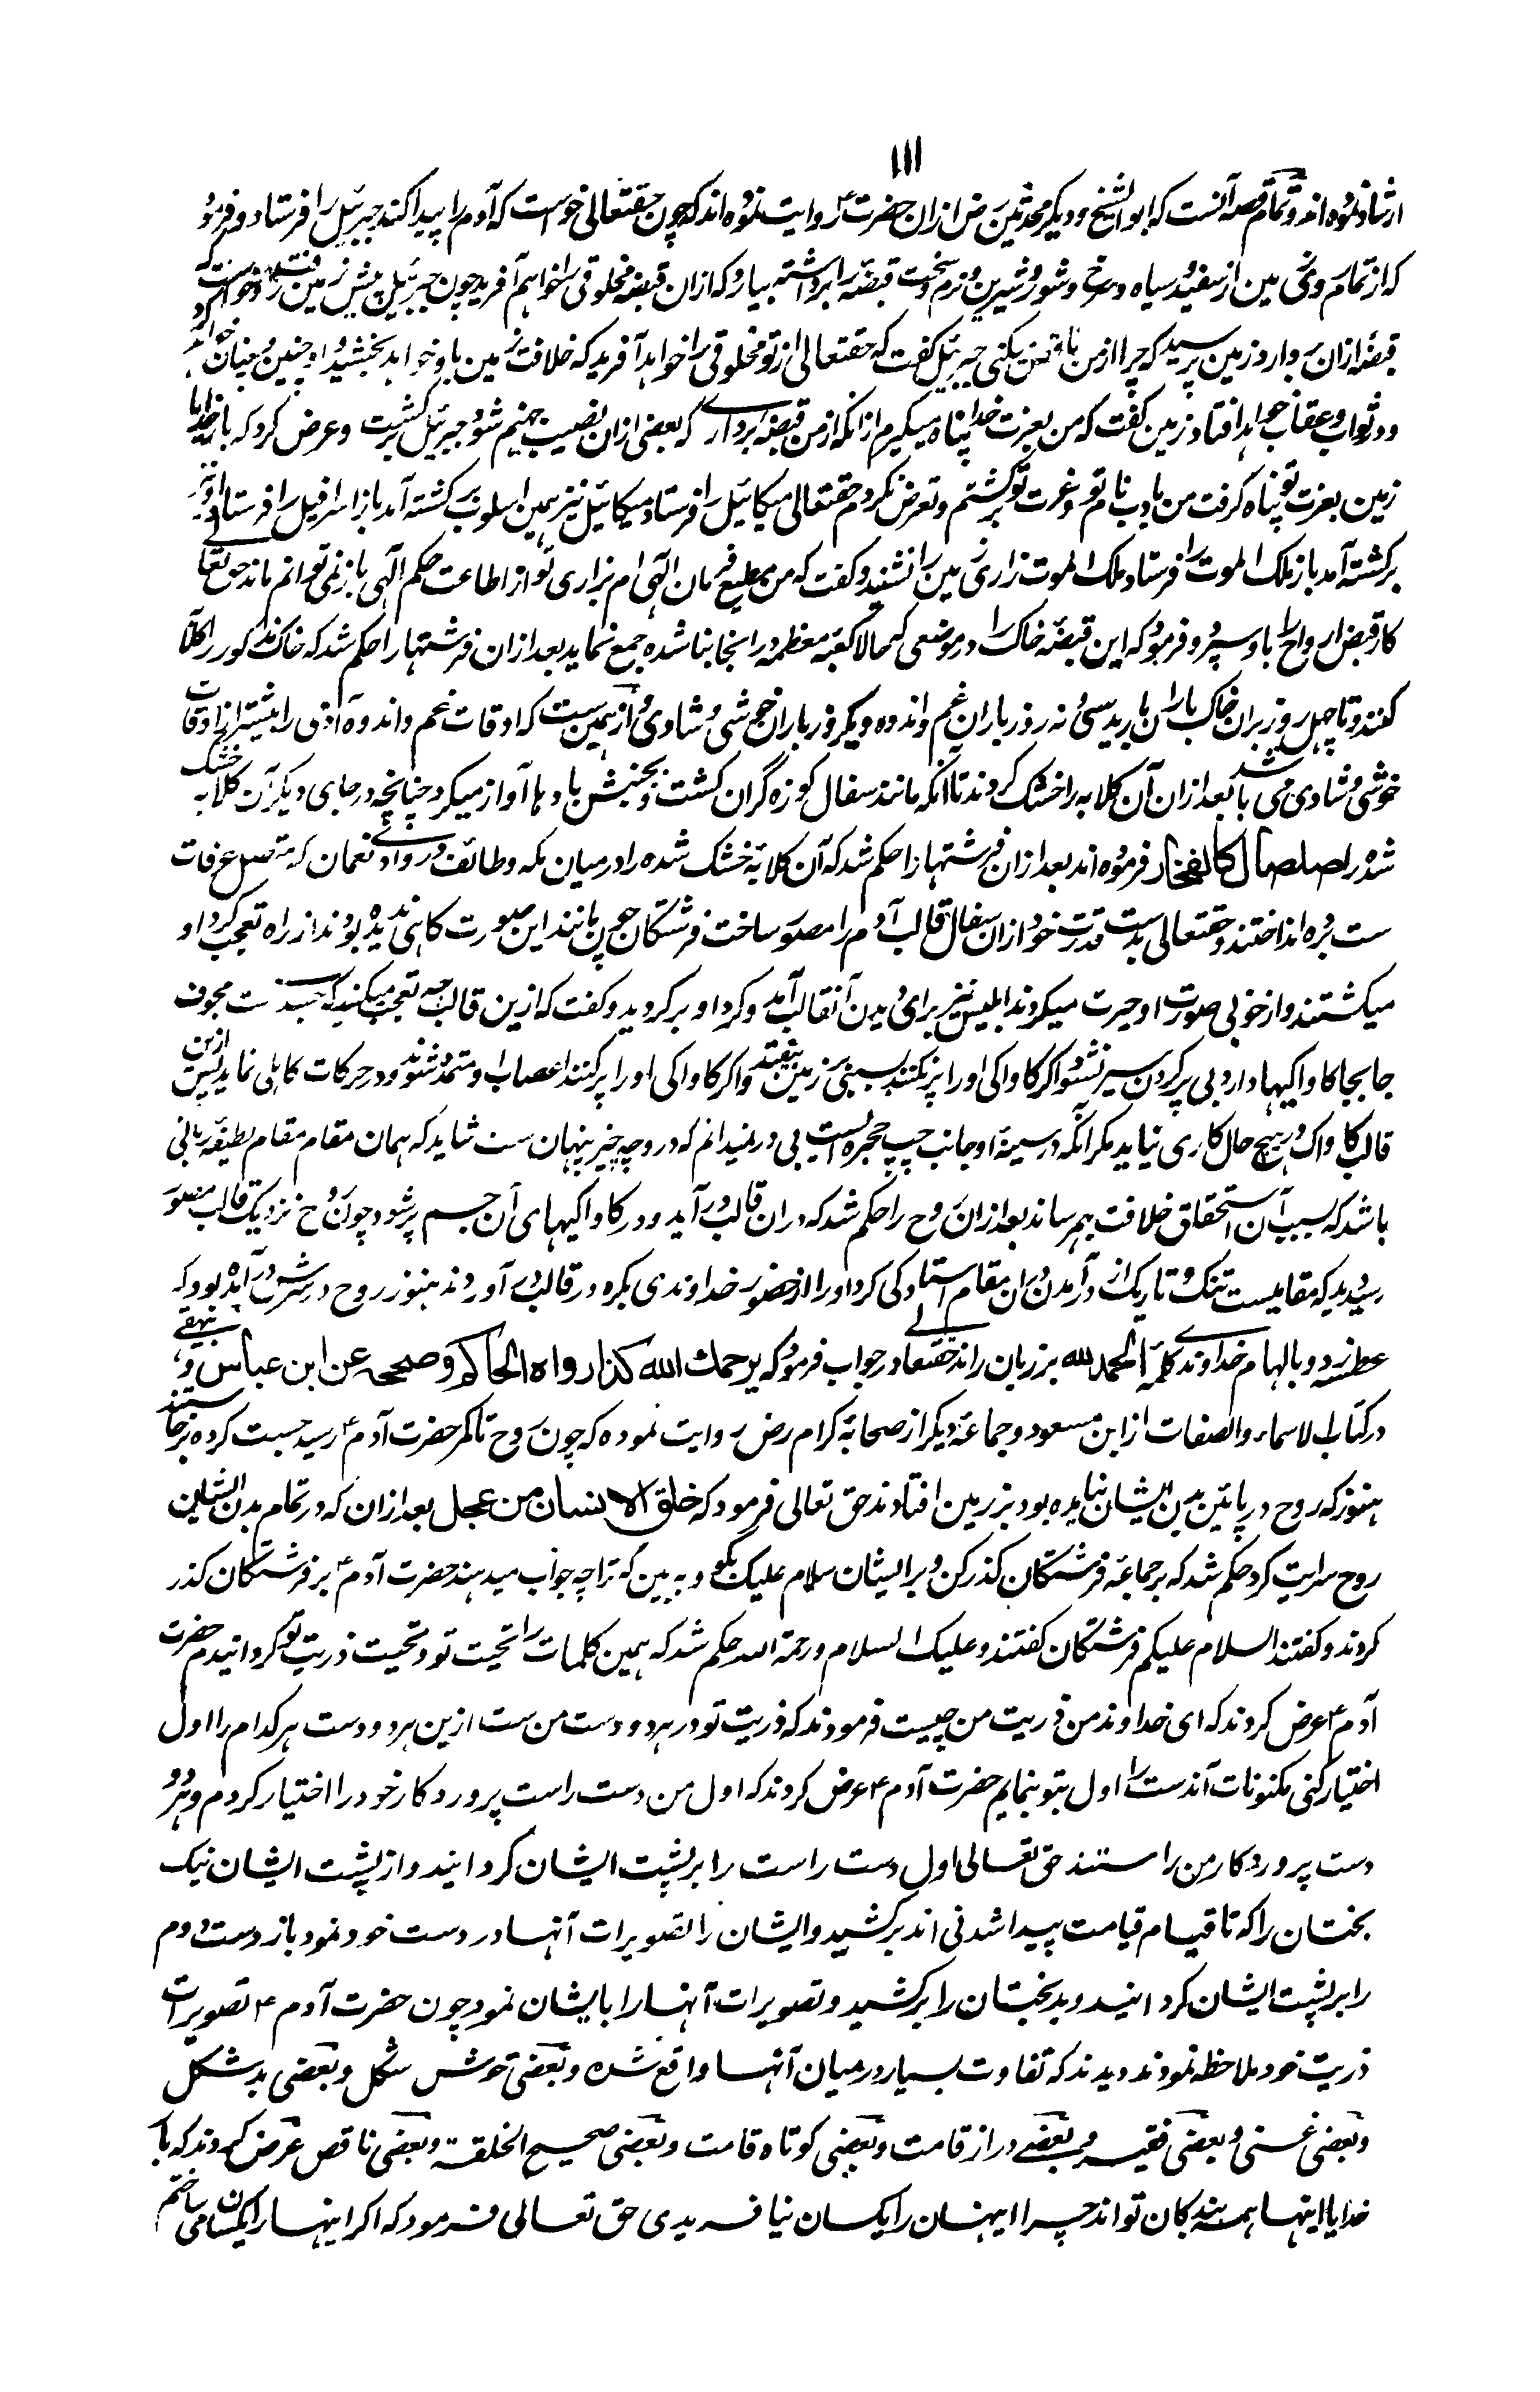 ۱۱۱
ارشاد نموده اند و تمام قصه آنست که ابو الشیخ و دیگر محدثین رض ازان حضرت ؑ روایت نموده اند که چون حقتعالی خواست که آدم را پیدا کند جبرئیل را فرستاد و فرمود
که از تمام روی زمین از سفید و سیاه و سرخ و شور و شیرین و نرم و سخت قبضه را برداشته بیار و که ازان قبضه مخلوقی را خواهم آفرید چون جبرئیل پیش زمین رفت و خواست که
قبضه ازان بردارد زمین پرسید که چرا از من میکنی جبرئیل گفت که حقتعالی از تو مخلوقی را خواهد آفرید که خلافت زمین باو خواهد بخشید و او چنین و چنان خواهد کرد
و در ثواب و عقاب خواهد افتاد زمین گفت که من بعزت خدا پناه میگیرم از آنکه از من قبضه برداری که بعضی ازان نصیب جهنم شود جبرئیل برگشت و عرض کرد که بار خدایا
زمین بعزت تو پناه گرفت من بادب نام تو و عزت تو برگشتم و تعرض نکردم حقتعالی میکائیل را فرستاد میکائیل نیز بهمین اسلوب برگشته آمد باز اسرافیل را فرستاد او نیز
برگشته آمد باز ملک الموت را فرستاد ملک الموت زاری زمین را نشنید و گفت که من مطیع فرمان الٰهی ام بزاری تو از اطاعت حکم الٰهی باز نمی توانم ماند حق تعالی
کار قبض ارواح را باو سپرد و فرمود که این قبضه خاک را در موضعی که حالا کعبه معظمه در انجا بنا شده جمع نماید بعد ازان فرشتها را حکم شد که خاک مذکور را گلابه
کنند و تا چهل روز بران خاک باران بارید سی و نه روز باران غم و اندوه و یکروز باران خوشی و شادی و از همین ست که اوقات غم و اندوه آدمی را بیشتر از اوقات
خوشی و شادی می باشد بعد ازان آن گلابه را خشک کردند تا آنکه مانند سفال کوزه گران گشت و بجنبش بادها آواز میکرد چنانچه در جای دیگر آن گلابه خشک
شده را صلصال کالفخار فرموده اند بعد ازان فرشتها را حکم شد که آن گلابه خشک شده را در میان مکه و طائف در وادی نعمان که متصل عرفات
ست برده انداختند و حقتعالی بدست قدرت خود ازان سفال قالب آدم را مصور ساخت فرشتگان چون مانند این صورت گاهی ندیده بودند از راه تعجب گرد او
میگشتند و از خوبی صورت او حیرت میکردند ابلیس نیز برای دیدن آنقالب آمد و گرد او برگردید و گفت که ازین قالب چه تعجب میکنید که ست مجوف
جا بجا کاواکیها دارد بی پر کردن سیر نشود اگر کاواکی او را پر نکنند بسینه بر زمین بیفتد و اگر کاواکی او را پر کنند اعصاب او متمدد شوند و در حرکات کاهلی نماید پس ازین
قالب کاواک در هیچ حال کاری نیاید مگر آنکه در سینه او جانب چپ حجره ایست بی در نمیدانم که در و چه چیز پنهان ست شاید که همان مقام مقام لطیفه ربانی
باشد که بسبب آن استحقاق خلافت بهم رساند بعد ازان روح را حکم شد که در ان قالب در آید و در کاواکیهای آن جسم پر شود چون روح نزدیک قالب مصور
رسید دید که مقامیست تنگ و تاریک از در آمدن در ان مقام استادگی کرد او را از حضور خداوندی بکره در قالب در آوردند هنوز روح در سرش در آمده بود که
عطسه زد و بالهام خداوندی کلمه الحمد لله بر زبان راند حقتعالی در جواب فرمود که یرحمك الله کذا رواه الحاکم وصححه عن ابن عباس و بیهقی
در کتاب الاسماء والصفات از ابن مسعود و جماعه دیگر از صحابه کرام رض روایت نموده که چون روح تا کمر حضرت آدم ؑ رسید جست کرده برخاستند
هنوز که روح در پائین بدن ایشان نیامده بود بر زمین افتادند حق تعالی فرمود که خلق الانسان من عجل بعد ازان که در تمام بدن ایشان
روح سرایت کرد حکم شد که بر جماعه فرشتگان گذر کن و بر ایشان سلام علیک بگو و به بین که ترا چه جواب میدهند حضرت آدم ؑ بر فرشتگان گذر
کردند و گفتند السلام علیکم فرشتگان گفتند و علیک السلام و رحمة الله حکم شد که همین کلمات را تحیت تو و تحیت ذریت تو گردانیدم حضرت
آدم ؑ عرض کردند که ای خداوند من ذریت من چیست فرمودند که ذریت تو در هر دو دست من ست ازین هر دو دست هر کدام را اول
اختیار کنی مکنونات آندست را اول بتو بنمایم حضرت آدم ؑ عرض کردند که اول من دست راست پروردگار خود را اختیار کردم و هر دو
دست پروردگار من راستند حق تعالی اول دست راست را بر پشت ایشان گردانید و از پشت ایشان نیک
بختان را که تا قیام قیامت پیدا شدنی اند برکشید و ایشان را تصویرات آنها در دست خود نمود باز دست دوم
را بر پشت ایشان گردانید و بدبختان را برکشید و تصویرات آنها را بایشان نمود چون حضرت آدم ؑ تصویرات
ذریت خود ملاحظه نمودند دیدند که تفاوت بسیار درمیان آنها واقع شده و بعضی خوش شکل و بعضی بد شکل
و بعضی غنی و بعضی فقیر و بعضے دراز قامت و بعضی کوتاه قامت و بعضی صحیح الخلقة و بعضی ناقص عرض کردند که بار
خدایا اینها همه بندگان تو اند چرا اینهان را یکسان نیافریدی حق تعالی فرمود که اگر اینها را یکسان می ساختم